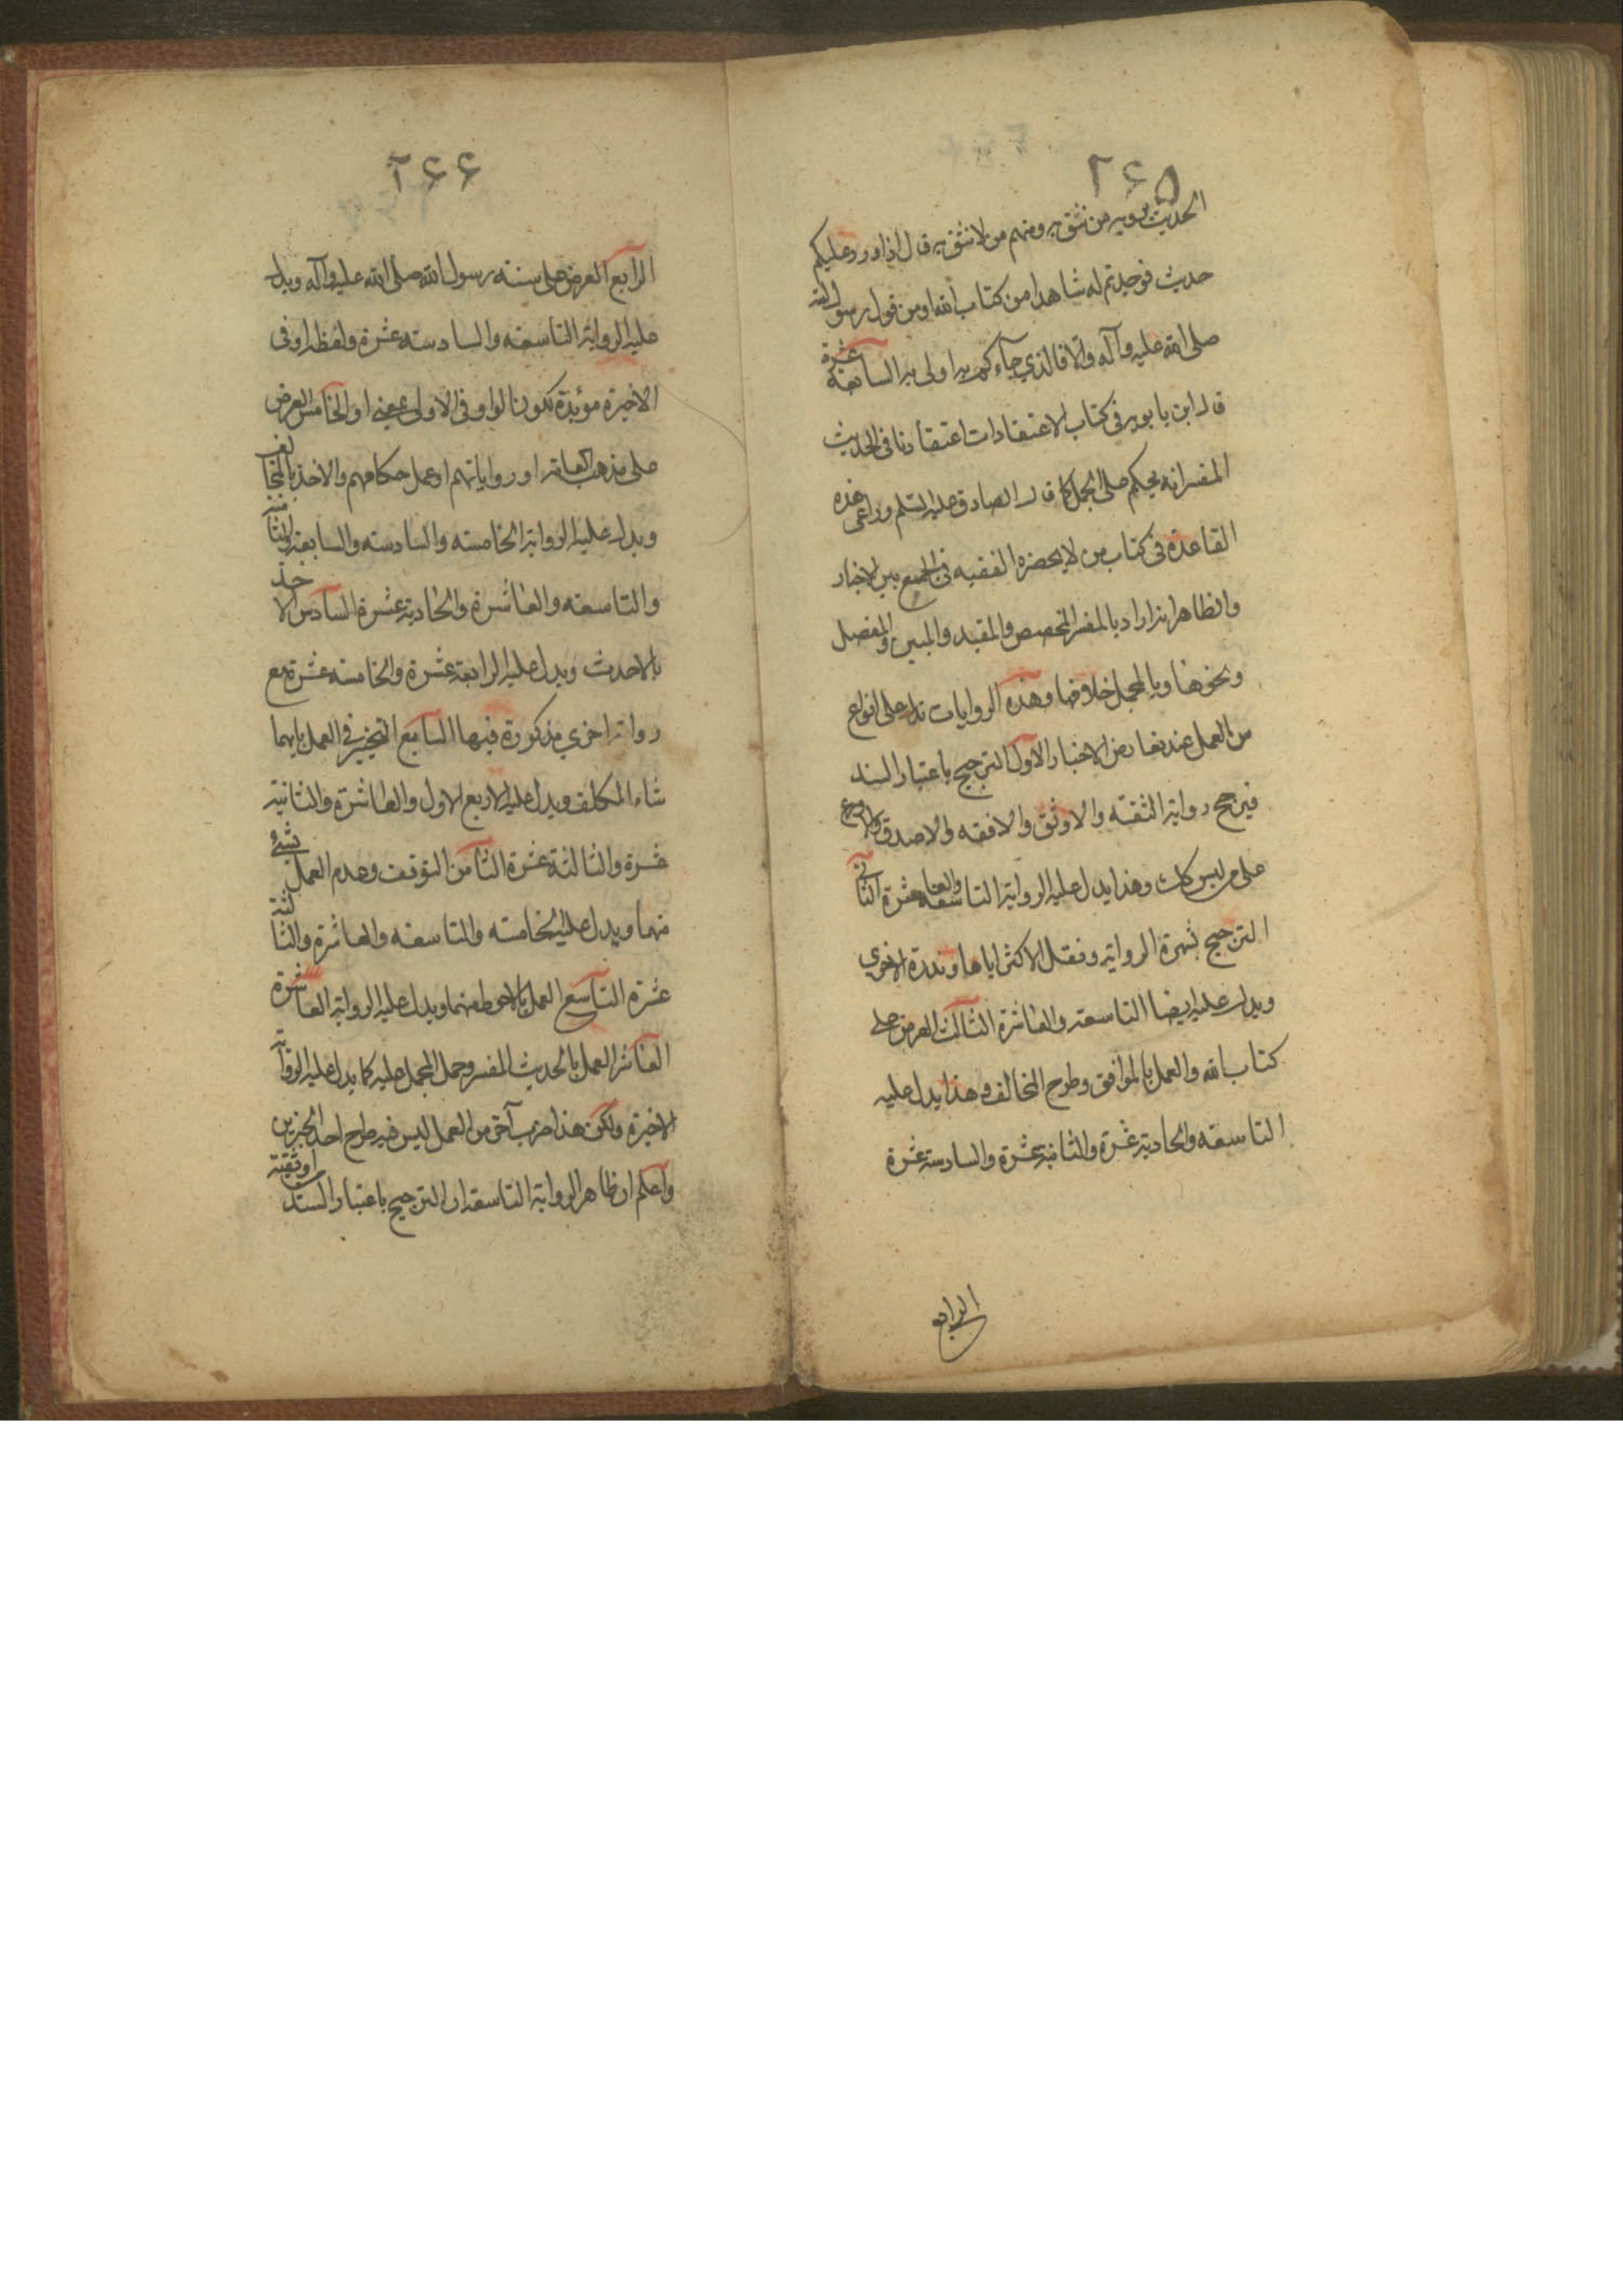 ٢٦٥
الحديث يرويه من نثق به ومنهم من لا نثق به قال اذا ورد عليكم
حديث فوجدتم له شاهدا من كتاب الله او من قول رسول الله
صلى الله عليه وآله والا فالذي جاءكم به اولى به السابعة عشرة
قال ابن بابويه في كتاب الاعتقادات اعتقادنا في الحديث
المفسر انه يحكم على المجمل كما قال الصادق عليه السلم وراعى هذه
القاعدة في كتاب من لا يحضره الفقيه في الجمع بين الاخبار
والظاهر انه اراد بالمفسر المخصص والمقيد والمبين والمفصل
ونحوها وبالمجمل خلافها وهذه الروايات تدل على انواع
من العمل عند تعارض الاخبار الاول الترجيح باعتبار السند
فيرجح رواية الثقة والاوثق والافقه والاصدق والاورع
على من ليس كك وهذا يدل عليه الرواية التاسعة والعاشرة الثاني
الترجيح بشهرة الرواية ونقل الاكثر اياها وندرة الاخرى
ويدل عليه ايضا التاسعة والعاشرة الثالث العرض على
كتاب الله والعمل بالموافق وطرح المخالف وهذا يدل عليه
التاسعة والحادية عشرة والثانية عشرة والسادسة عشرة
الرابع
٢٦٦
الرابع العرض على سنة رسول الله صلى الله عليه وآله ويدل
عليه الرواية التاسعة والسادسة عشرة ولفظة او في
الاخيرة مؤيدة لكون الواو في الاولى بمعنى او الخامس العرض
على مذهب العامة او رواياتهم او عمل حكامهم والاخذ بالمخالف
ويدل عليه الرواية الخامسة والسادسة والسابعة والثامنة
والتاسعة والعاشرة والحادية عشرة السادس الاخذ
بالاحدث ويدل عليه الرابعة عشرة والخامسة عشرة مع
رواية اخرى مذكورة فيها السابع التخيير في العمل بايهما
شاء المكلف ويدل عليه الاربع الاول والعاشرة والثانية
عشرة والثالثة عشرة الثامن التوقف وعدم العمل بشئ
منهما ويدل عليه الخامسة والتاسعة والعاشرة والثالثة
عشرة التاسع العمل بالاحوط منهما ويدل عليه الرواية العاشرة
العاشر العمل بالحديث المفسر وحمل المجمل عليه كما يدل عليه الرواية
الاخيرة ولكن هذا ضرب آخر من العمل ليس فيه طرح احد الخبرين
واعلم ان ظاهر الرواية التاسعة ان الترجيح باعتبار السند اوثقية